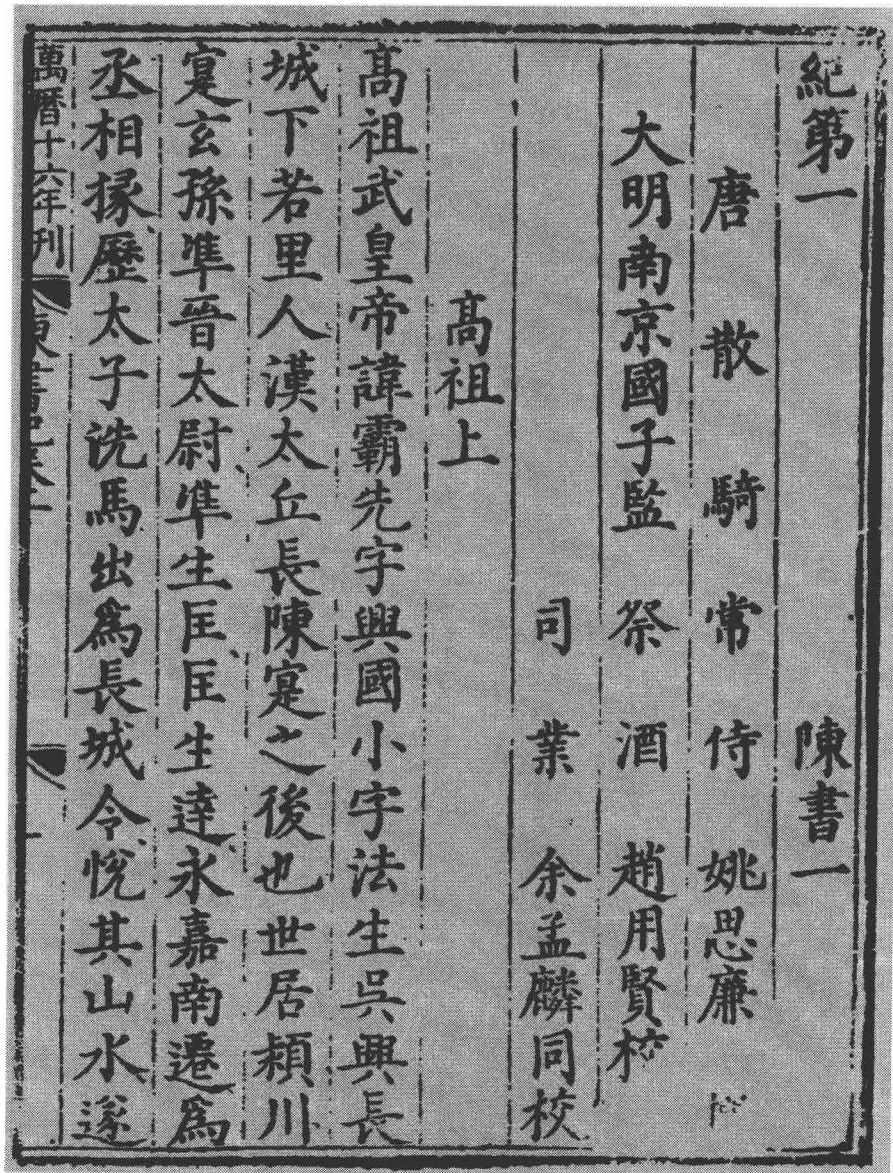 紀第一 陳書一
唐散騎常侍姚思廉
大明南京國子監祭酒趙用賢校
司業余孟麟同校
髙祖上
髙祖武皇帝諱霸先字興國小字法生吳興長
城下若里人漢太丘長陳寔之後也世居潁川
寔玄孫準晉太尉準生匡匡生達永嘉南遷爲
丞相掾歷太子洗馬出爲長城令悅其山水遂
萬曆十六年刊